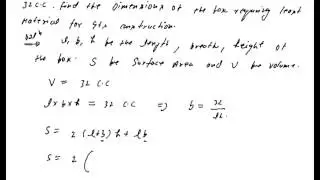 32 C.C. find the dimensions of the box requiring least
material for its construction.
Soln → l, b, h be the length, breath, height of
the box. S be Surface Area and V be volume.
V = 32 C.C
l×b×h = 32 C.C ⇒ b = 32/lh
S = 2 (l+b) h + lb
S = 2 (